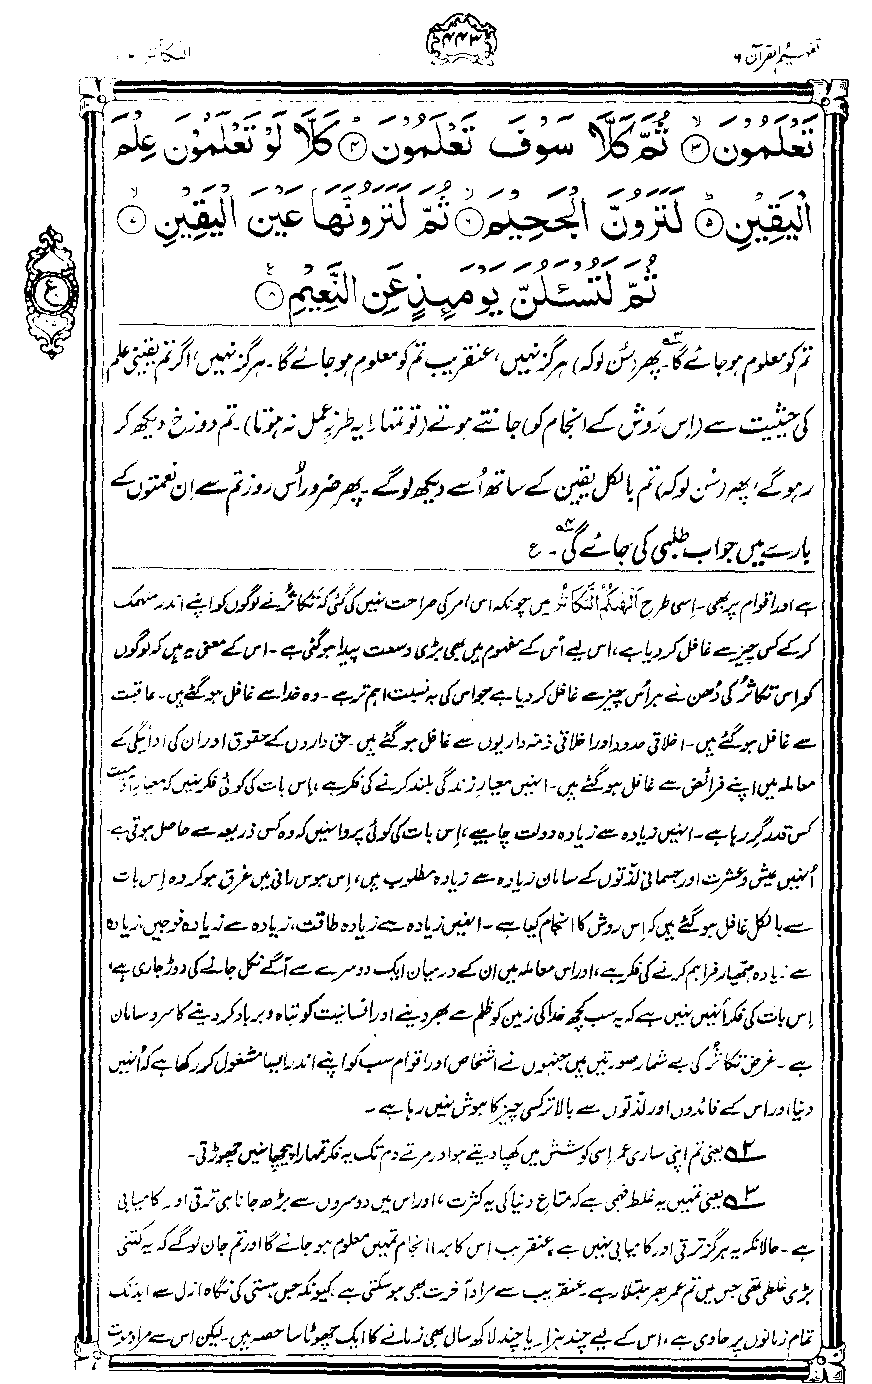 تفہیم القرآن ۶
۴۴۳
التکاثر ۱۰۲
تَعْلَمُوْنَ ۙ﴿۳﴾ ثُمَّ كَلَّا سَوْفَ تَعْلَمُوْنَ ؕ﴿۴﴾ كَلَّا لَوْ تَعْلَمُوْنَ عِلْمَ
الْيَقِيْنِ ؕ﴿۵﴾ لَتَرَوُنَّ الْجَحِيْمَ ۙ﴿۶﴾ ثُمَّ لَتَرَوُنَّهَا عَيْنَ الْيَقِيْنِ ۙ﴿۷﴾
ثُمَّ لَتُسْـَٔلُنَّ يَوْمَىِٕذٍ عَنِ النَّعِيْمِ ﴿۸﴾
ع
تم کو معلوم ہو جائے گا۔۳ پھر (سُن لو کہ) ہرگز نہیں، عنقریب تم کو معلوم ہو جائے گا۔ ہرگز نہیں، اگر تم یقینی علم
کی حیثیت سے (اِس رَوش کے انجام کو) جانتے ہوتے (تو تمہارا یہ طرزِ عمل نہ ہوتا)۔ تم دوزخ دیکھ کر
رہو گے، پھر (سُن لو کہ) تم بالکل یقین کے ساتھ اُسے دیکھ لو گے۔ پھر ضرور اُس روز تم سے اِن نعمتوں کے
بارے میں جواب طلبی کی جائے گی۴۔ ع
ہے اور اقوام پر بھی۔ اِسی طرح اَلْهٰىكُمُ التَّكَاثُرُ میں چونکہ اس امر کی صراحت نہیں کی گئی کہ تکاثُر نے لوگوں کو اپنے اندر منہمک
کر کے کس چیز سے غافل کر دیا ہے، اس لیے اُس کے مفہوم میں بھی بڑی وسعت پیدا ہو گئی ہے۔ اس کے معنی یہ ہیں کہ لوگوں
کو اس تکاثُر کی دُھن نے ہر اُس چیز سے غافل کر دیا ہے جو اس کی بہ نسبت اہم تر ہے۔ وہ خدا سے غافل ہو گئے ہیں۔ عاقبت
سے غافل ہو گئے ہیں۔ اخلاقی حدود اور اخلاقی ذمہ داریوں سے غافل ہو گئے ہیں۔ حق داروں کے حقوق اور ان کی ادائیگی کے
معاملہ میں اپنے فرائض سے غافل ہو گئے ہیں۔ انہیں معیارِ زندگی بلند کرنے کی فکر ہے، اِس بات کی کوئی فکر نہیں کہ معیارِ آدمیت
کس قدر گر رہا ہے۔ انہیں زیادہ سے زیادہ دولت چاہیے، اِس بات کی کوئی پروا نہیں کہ وہ کس ذریعہ سے حاصل ہوتی ہے۔
اُنہیں عیش و عشرت اور جسمانی لذّتوں کے سامان زیادہ سے زیادہ مطلوب ہیں، اِس ہوس رانی میں غرق ہو کر وہ اِس بات
سے بالکل غافل ہو گئے ہیں کہ اِس روش کا انجام کیا ہے۔ انہیں زیادہ سے زیادہ طاقت، زیادہ سے زیادہ فوجیں، زیادہ
سے زیادہ ہتھیار فراہم کرنے کی فکر ہے، اور اس معاملہ میں ان کے درمیان ایک دوسرے سے آگے نکل جانے کی دوڑ جاری ہے،
اِس بات کی فکر اُنہیں نہیں ہے کہ یہ سب کچھ خدا کی زمین کو ظلم سے بھر دینے اور انسانیت کو تباہ و برباد کر دینے کا سروسامان
ہے۔ غرض تکاثُر کی بے شمار صورتیں ہیں جنہوں نے اشخاص اور اقوام سب کو اپنے اندر ایسا مشغول کر رکھا ہے کہ اُنہیں
دنیا اور اس کے فائدوں اور لذّتوں سے بالاتر کسی چیز کا ہوش نہیں رہا ہے۔
۲؎ یعنی تم اپنی ساری عمر اِسی کوشش میں کھپا دیتے ہو اور مرتے دم تک یہ فکر تمہارا پیچھا نہیں چھوڑتی۔
۳؎ یعنی تمہیں یہ غلط فہمی ہے کہ متاعِ دنیا کی یہ کثرت، اور اس میں دوسروں سے بڑھ جانا ہی ترقی اور کامیابی
ہے۔ حالانکہ یہ ہرگز ترقی اور کامیابی نہیں ہے۔ عنقریب اِس کا برا انجام تمہیں معلوم ہو جائے گا اور تم جان لو گے کہ یہ کتنی
بڑی غلطی تھی جس میں تم عمر بھر مبتلا رہے۔ عنقریب سے مراد آخرت بھی ہو سکتی ہے، کیونکہ جس ہستی کی نگاہ ازل سے ابد تک
تمام زمانوں پر حاوی ہے، اس کے لیے چند ہزار یا چند لاکھ سال بھی زمانے کا ایک چھوٹا سا حصہ ہیں۔ لیکن اس سے مراد موت